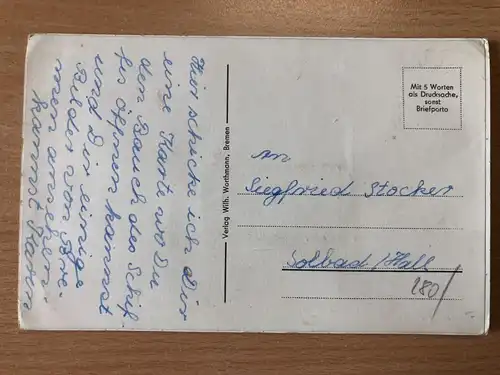 Hier schicke ich Dir
eine Karte wo Du
den Bauch des Schif-
fes öffnen kannst
und Dir einige
Bilder von Bre-
men ansehen
kannst
Verlag Wilh. Worthmann, Bremen
Mit 5 Worten
als Drucksache,
sonst
Briefporto
An
Siegfried Stocker
Solbad/Hall
280/